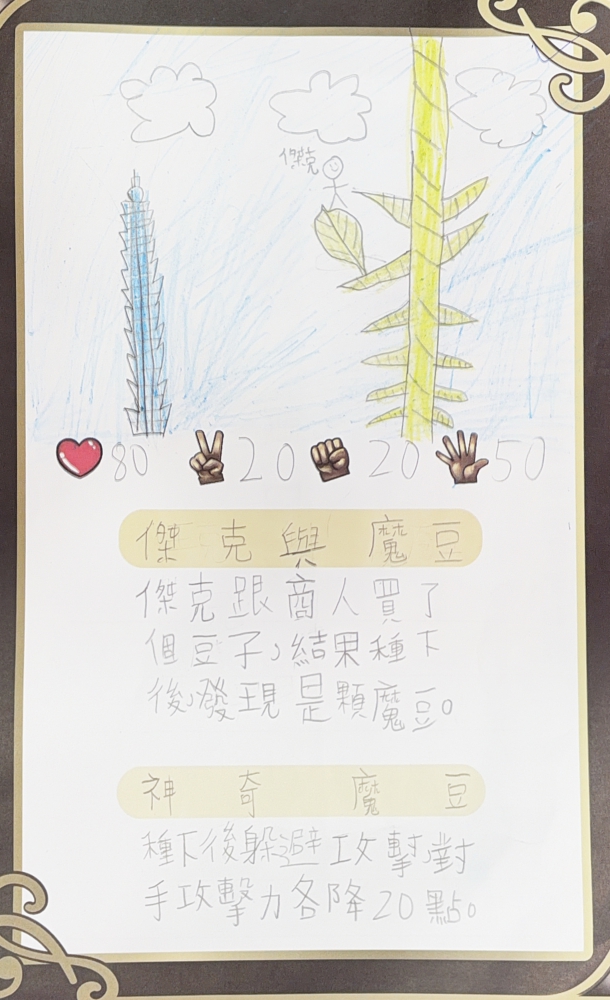 傑克
80 20 20 50
傑克與魔豆
傑克跟商人買了
個豆子,結果種下
後,發現是顆魔豆。
神奇魔豆
種下後躲避攻擊,對
手攻擊力各降20點。